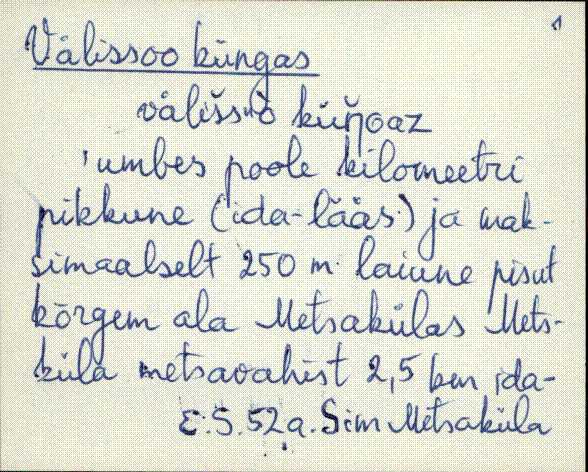 1
Välissoo küngas
välissuo küŋ̆oaz
'umbes poole kilomeetri
pikkune (ida-lääs) ja mak-
simaalselt 250 m laiune pisut
kõrgem ala Metsakülas Mets-
küla metsavahist 2,5 km ida-
E.S. 52 a. Sim Metsaküla